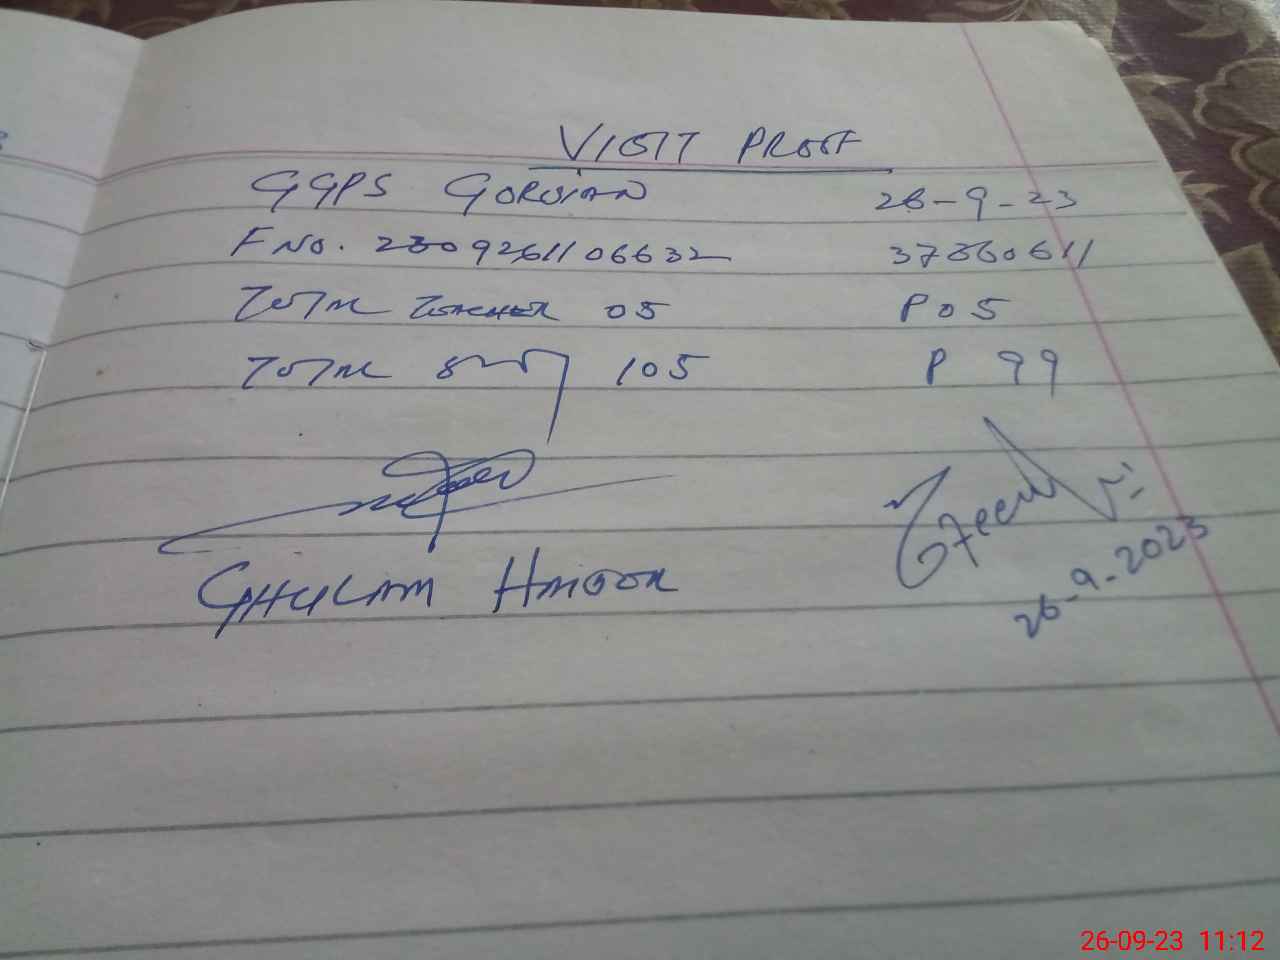 VISIT PROOF
GGPS GORSIAN 26-9-23
F NO. 2309261106632 37360611
TOTAL TEACHER 05 P 05
TOTAL 105 P 99
GHULAM HAIDER
26-9-2023
26-09-23 11:12